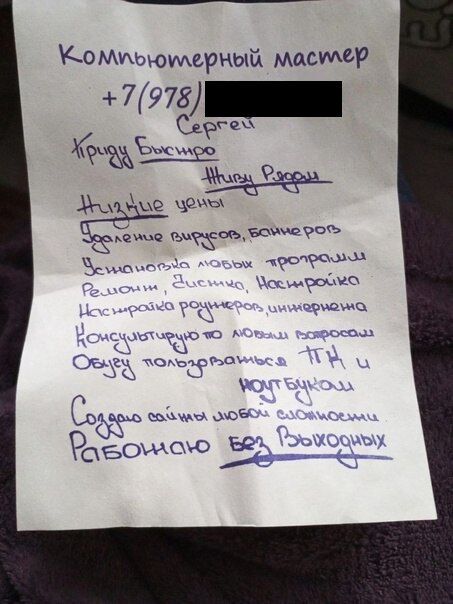 Компьютерный мастер
+7(978)
Сергей
Приду Быстро
Живу Рядом
Низкие цены
Удаление вирусов, баннеров
Установка любых программ
Ремонт, Чистка, Настройка
Настройка роутеров, интернета
Консультирую по любым вопросам
Обучу пользоваться ПК и
ноутбуком
Создаю сайты любой сложности
Работаю без Выходных